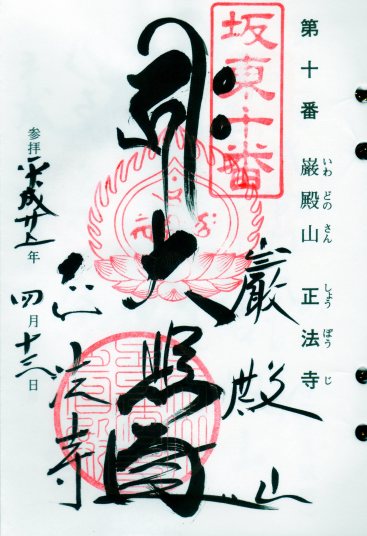 第十番 巌殿山 正法寺
いわ どの さん しょう ぼう じ
坂東十番
巌殿山
大悲閣
正法寺
参拝 平成廿五年 四月十三日